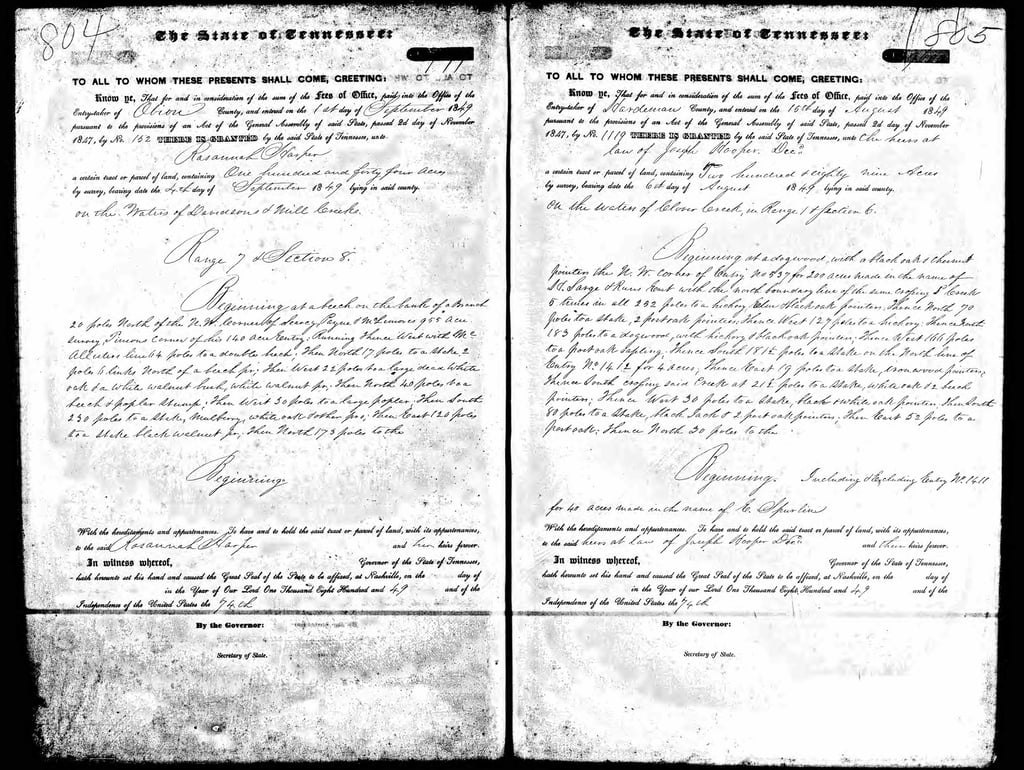 804
The State of Tennessee:
TO ALL TO WHOM THESE PRESENTS SHALL COME, GREETING:
Know ye, That for and in consideration of the sum of the Fees of Office, paid into the Office of the
Entry-taker of Obion County, and entered on the 1st day of September 1849
pursuant to the provisions of an Act of the General Assembly of said State, passed 2d day of November
1847, by No. 152 THERE IS GRANTED by the said State of Tennessee, unto
Rosannah Harper
a certain tract or parcel of land, containing One hundred and forty four acres
by survey, bearing date the 4th day of September 1849 lying in said county.
on the Waters of Davidsons & Mill Creeks.
Range 7 & Section 8.
Beginning at a beech on the bank of a Branch
20 poles North of the N.W. Corner of Payne & 955 Acre
survey, Pirsons Corner of his 140 acre Entry, Running thence West with Mc
Allisters line 64 poles to a double beech; Then North 17 poles to a stake 2
poles 6 links North of a beech pr; Then West 22 poles to a large dead white
oak & a white walnut bush, white walnut pr; Then North 40 poles to a
beech & poplar stump; Then West 30 poles to a large poplar, Then South
230 poles to a stake, Mulberry, white oak & other prs; Then East 120 poles
to a stake black walnut pr, Then North 173 poles to the
Beginning.
With the hereditaments and appurtenances. To have and to hold the said tract or parcel of land, with its appurtenances,
to the said Rosannah Harper and her heirs forever.
In witness whereof, Governor of the State of Tennessee,
hath hereunto set his hand and caused the Great Seal of the State to be affixed, at Nashville, on the day of
in the Year of Our Lord One Thousand Eight Hundred and 49 and of the
Independence of the United States the 74th
By the Governor:
Secretary of State.
805
The State of Tennessee:
TO ALL TO WHOM THESE PRESENTS SHALL COME, GREETING:
Know ye, That for and in consideration of the sum of the Fees of Office, paid into the Office of the
Entry-taker of Hardeman County, and entered on the 15th day of August 1849
pursuant to the provisions of an Act of the General Assembly of said State, passed 2d day of November
1847, by No. 1119 THERE IS GRANTED by the said State of Tennessee, unto the heirs at
law of Joseph Hooper Decd
a certain tract or parcel of land, containing Two hundred & eighty nine Acres
by survey, bearing date the 6th day of August 1849 lying in said county.
On the waters of Clover Creek, in Range 1 & Section 6.
Beginning at a dogwood, with a black oak & chesnut
pointers the N.W. corner of Entry No 537 for 200 acres made in the name of
Large & Runs East with the north boundary line of the same crossing Creek
5 times in all 232 poles to a hickory Elm & black oak pointers, Thence North 70
poles to a stake, 2 post oak pointers; Thence West 127 poles to a hickory; Thence North
183 poles to a dogwood, with hickory & black oak pointers; Thence West 166 poles
to a post oak sapling. Thence South 181½ poles to a stake on the North line of
Entry No 1412 for 4 acres, Thence East 19 poles to a stake, ironwood pointers;
Thence South crossing said Creek at 21½ poles to a stake, white oak & 2 beech
pointers; Thence West 30 poles to a stake, black & white oak pointers. Then South
80 poles to a stake, black Jack & 2 post oak pointers; Then East 52 poles to a
post oak; Thence North 30 poles to the
Beginning. Including & Excluding Entry No. 1411
for 40 acres made in the name of C. Spurlin
With the hereditaments and appurtenances. To have and to hold the said tract or parcel of land, with its appurtenances,
to the said heirs at law of Joseph Hooper Decd and their heirs forever.
In witness whereof, Governor of the State of Tennessee,
hath hereunto set his hand and caused the Great Seal of the State to be affixed, at Nashville, on the day of
in the Year of Our Lord One Thousand Eight Hundred and 49 and of the
Independence of the United States the 74th
By the Governor:
Secretary of State.